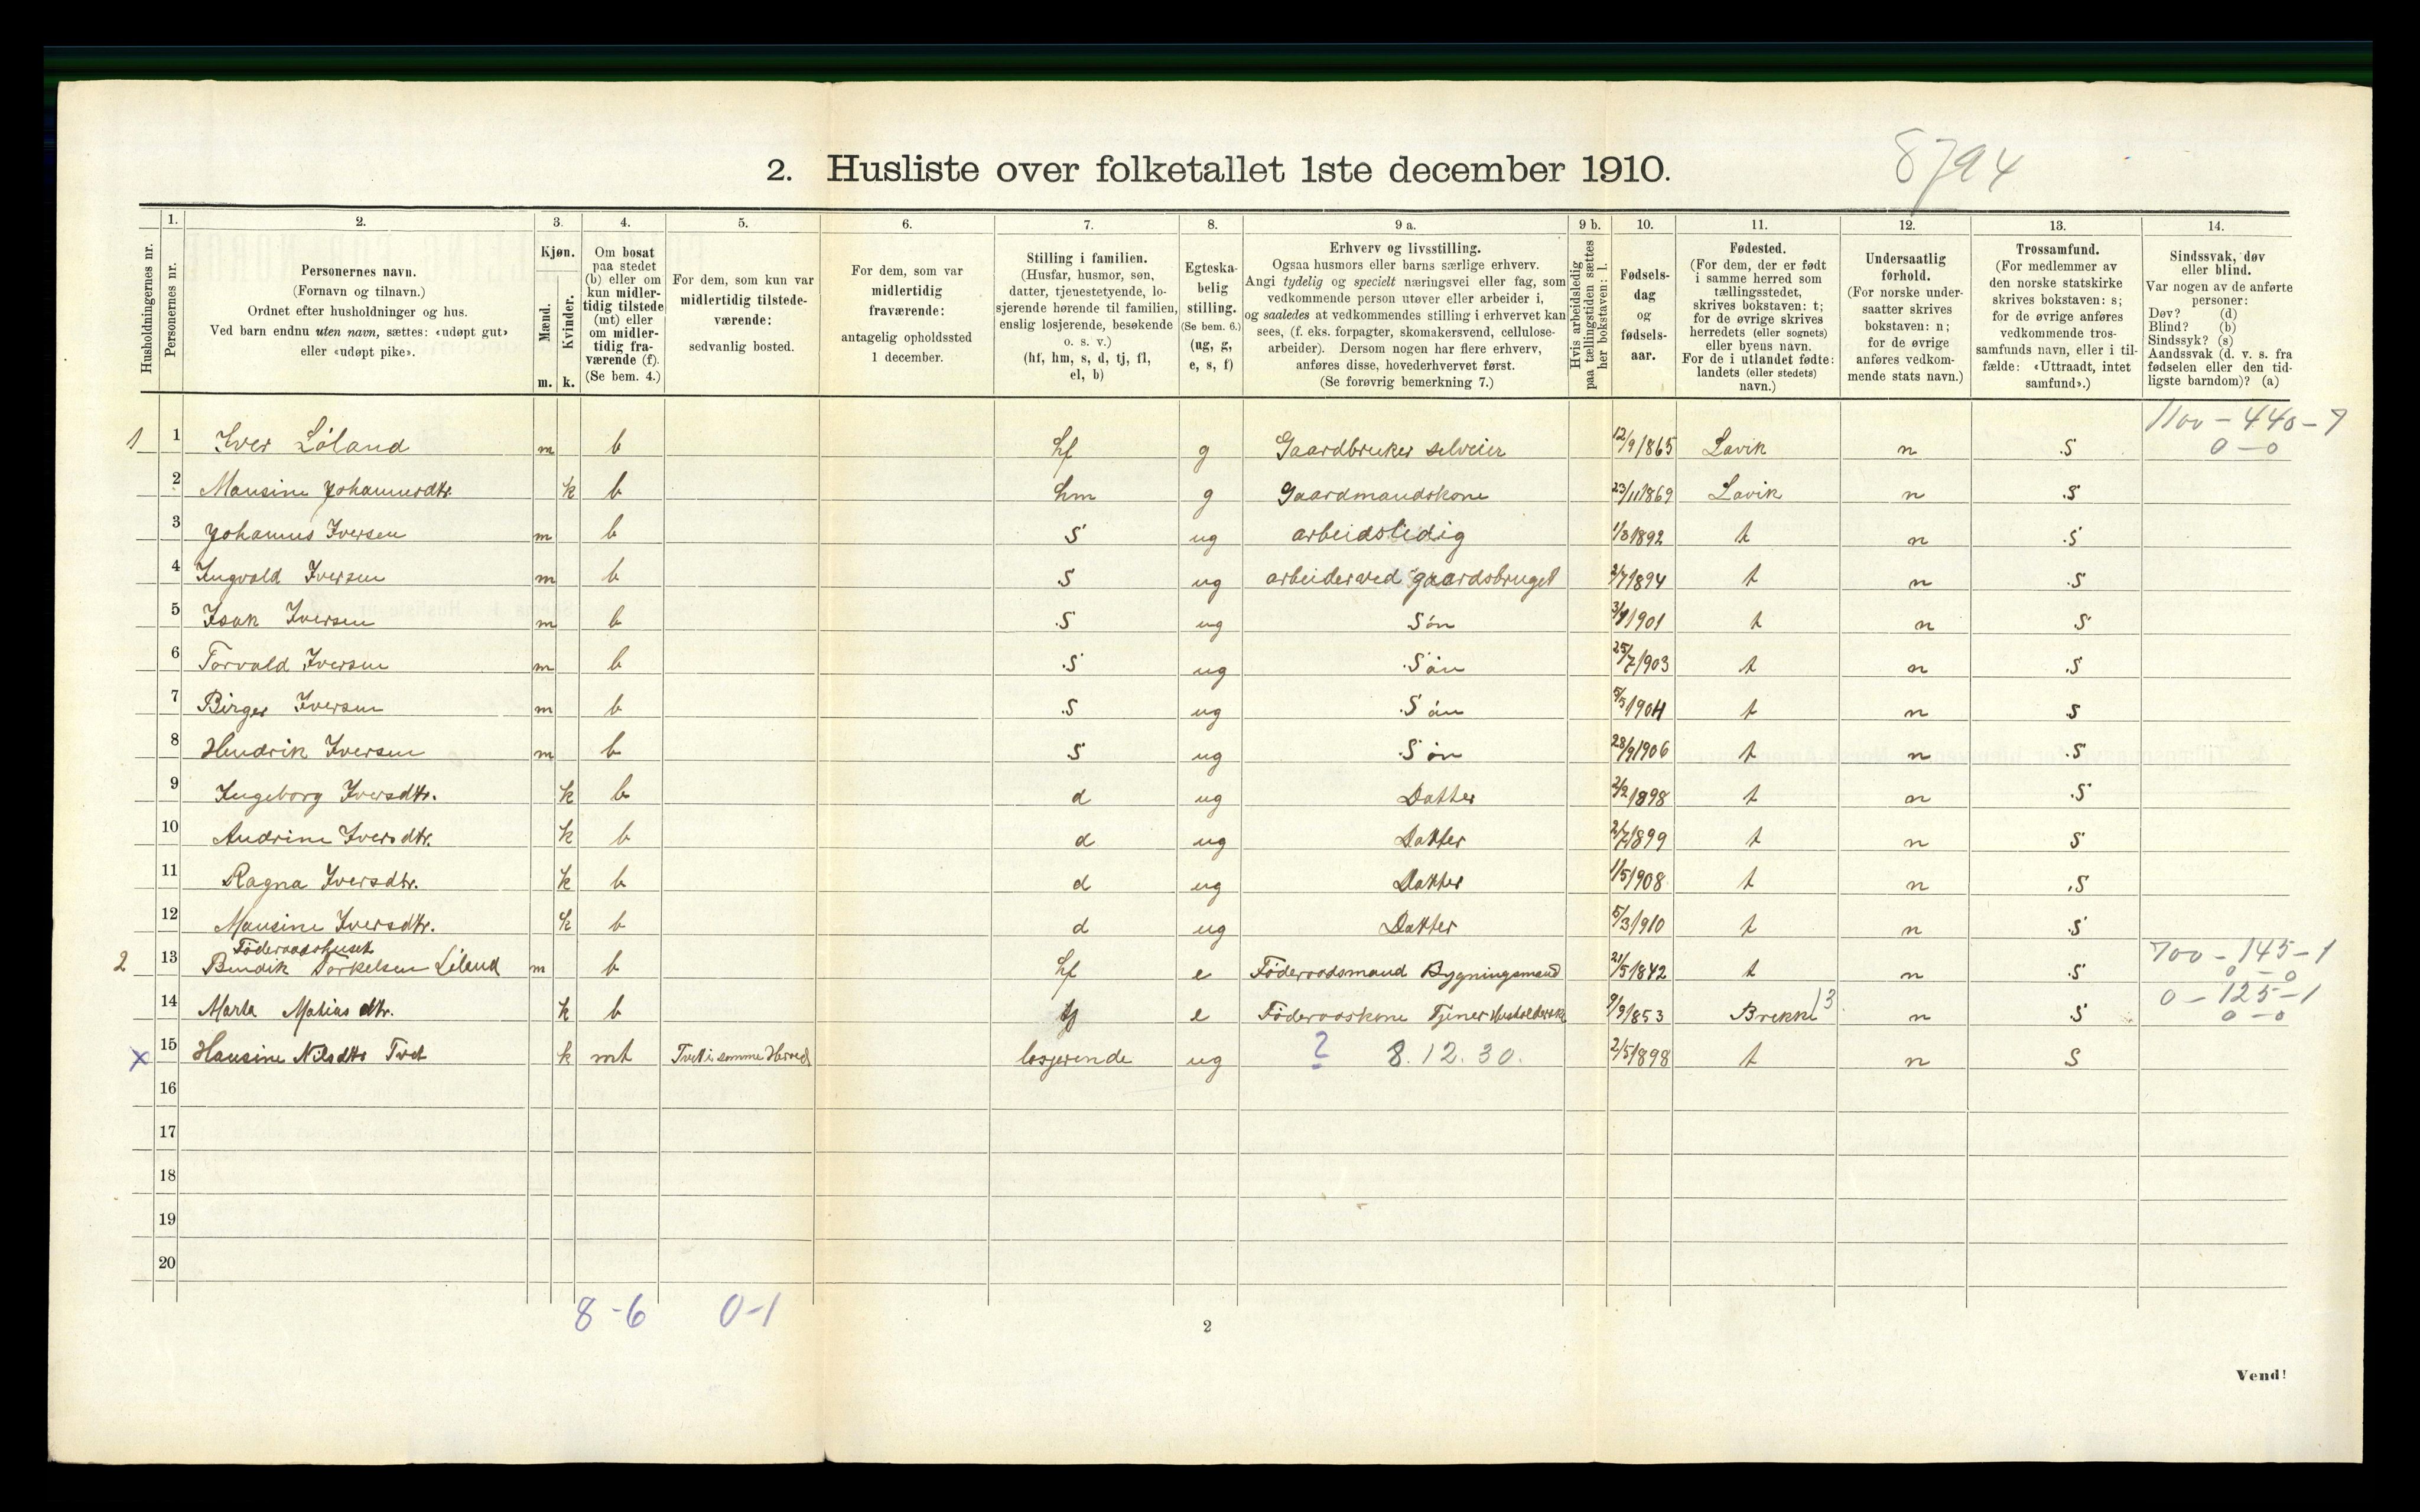 8794
2. Husliste over folketallet 1ste december 1910.
Husholdningernes nr.
1.
Personernes nr.
2.
Personernes navn.
(Fornavn og tilnavn.)
Ordnet efter husholdninger og hus.
Ved barn endnu uten navn, sættes: «udøpt gut»
eller «udøpt pike».
3.
Kjøn.
Mænd.
Kvinder.
m. k.
4.
Om bosat
paa stedet
(b) eller om
kun midler-
tidig tilstede
(mt) eller
om midler-
tidig fra-
værende (f).
(Se bem. 4.)
5.
For dem, som kun var
midlertidig tilstede-
værende:
sedvanlig bosted.
6.
For dem, som var
midlertidig
fraværende:
antagelig opholdssted
1 december.
7.
Stilling i familien.
(Husfar, husmor, søn,
datter, tjenestetyende, lo-
sjerende hørende til familien,
enslig losjerende, besøkende
o. s. v.)
(hf, hm, s, d, tj, fl,
el, b)
8.
Egteska-
belig
stilling.
(Se bem. 6.)
(ug, g,
e, s, f)
9 a.
Erhverv og livsstilling.
Ogsaa husmors eller barns særlige erhverv.
Angi tydelig og specielt næringsvei eller fag, som
vedkommende person utøver eller arbeider i,
og saaledes at vedkommendes stilling i erhvervet kan
sees, (f. eks. forpagter, skomakersvend, cellulose-
arbeider). Dersom nogen har flere erhverv,
anføres disse, hovederhvervet først.
(Se forøvrig bemerkning 7.)
9 b.
Hvis arbeidsledig
paa tællingstiden sættes
her bokstaven: l.
10.
Fødsels-
dag
og
fødsels-
aar.
11.
Fødested.
(For dem, der er født
i samme herred som
tællingsstedet,
skrives bokstaven: t;
for de øvrige skrives
herredets (eller sognets)
eller byens navn.
For de i utlandet fødte:
landets (eller stedets)
navn.)
12.
Undersaatlig
forhold.
(For norske under-
saatter skrives
bokstaven: n;
for de øvrige
anføres vedkom-
mende stats navn.)
13.
Trossamfund.
(For medlemmer av
den norske statskirke
skrives bokstaven: s;
for de øvrige anføres
vedkommende tros-
samfunds navn, eller i til-
fælde: «Uttraadt, intet
samfund».)
14.
Sindssvak, døv
eller blind.
Var nogen av de anførte
personer:
Døv? (d)
Blind? (b)
Sindssyk? (s)
Aandssvak (d. v. s. fra
fødselen eller den tid-
ligste barndom)? (a)
1100 - 440 - 7
1 1 Iver Løland m b hf g Gaardbruker selveier 12/9 1865 Lavik n S 0 - 0
2 Mansine Johannesdtr. k b hm g Gaardmandskone 23/11 1869 Lavik n S
3 Johannes Iversen m b S ug arbeidsledig 1/3 1892 t n S
4 Ingvald Iversen m b S ug arbeider ved gaardsbruget 2/7 1894 t n S
5 Isak Iversen m b S ug Søn 1901 t n S
6 Torvald Iversen m b S ug Søn 25/7 1903 t n S
7 Birger Iversen m b S ug Søn 5/5 1904 t n S
8 Hendrik Iversen m b S ug Søn 28/9 1906 t n S
9 Ingeborg Iversdtr. k b d ug Datter 2/2 1898 t n S
10 Andrine Iversdtr. k b d ug Datter 2/7 1899 t n S
11 Ragna Iversdtr. k b d ug Datter 1/5 1908 t n S
12 Mansine Iversdtr. k b d ug Datter 5/3 1910 t n S
Föderaadshuset 700 - 145 - 1
2 13 Bendik Torkelsen Løland m b hf e Föderaadsmand Bygningsmand 21/5 1842 t n S 0 - 0
0 - 125 - 1
14 Marta Matias dtr. k b tj e Föderaadskone Tjener Husholderske 9/9 1853 Brekke 13 n S 0 - 0
x 15 Hansine Nilsdtr Tvet k mt Tvet i samme Herred losjerende ug ? 8.12.30. 2/5 1898 t n S
16
17
18
19
20
8 - 6 0 - 1
2
Vend!